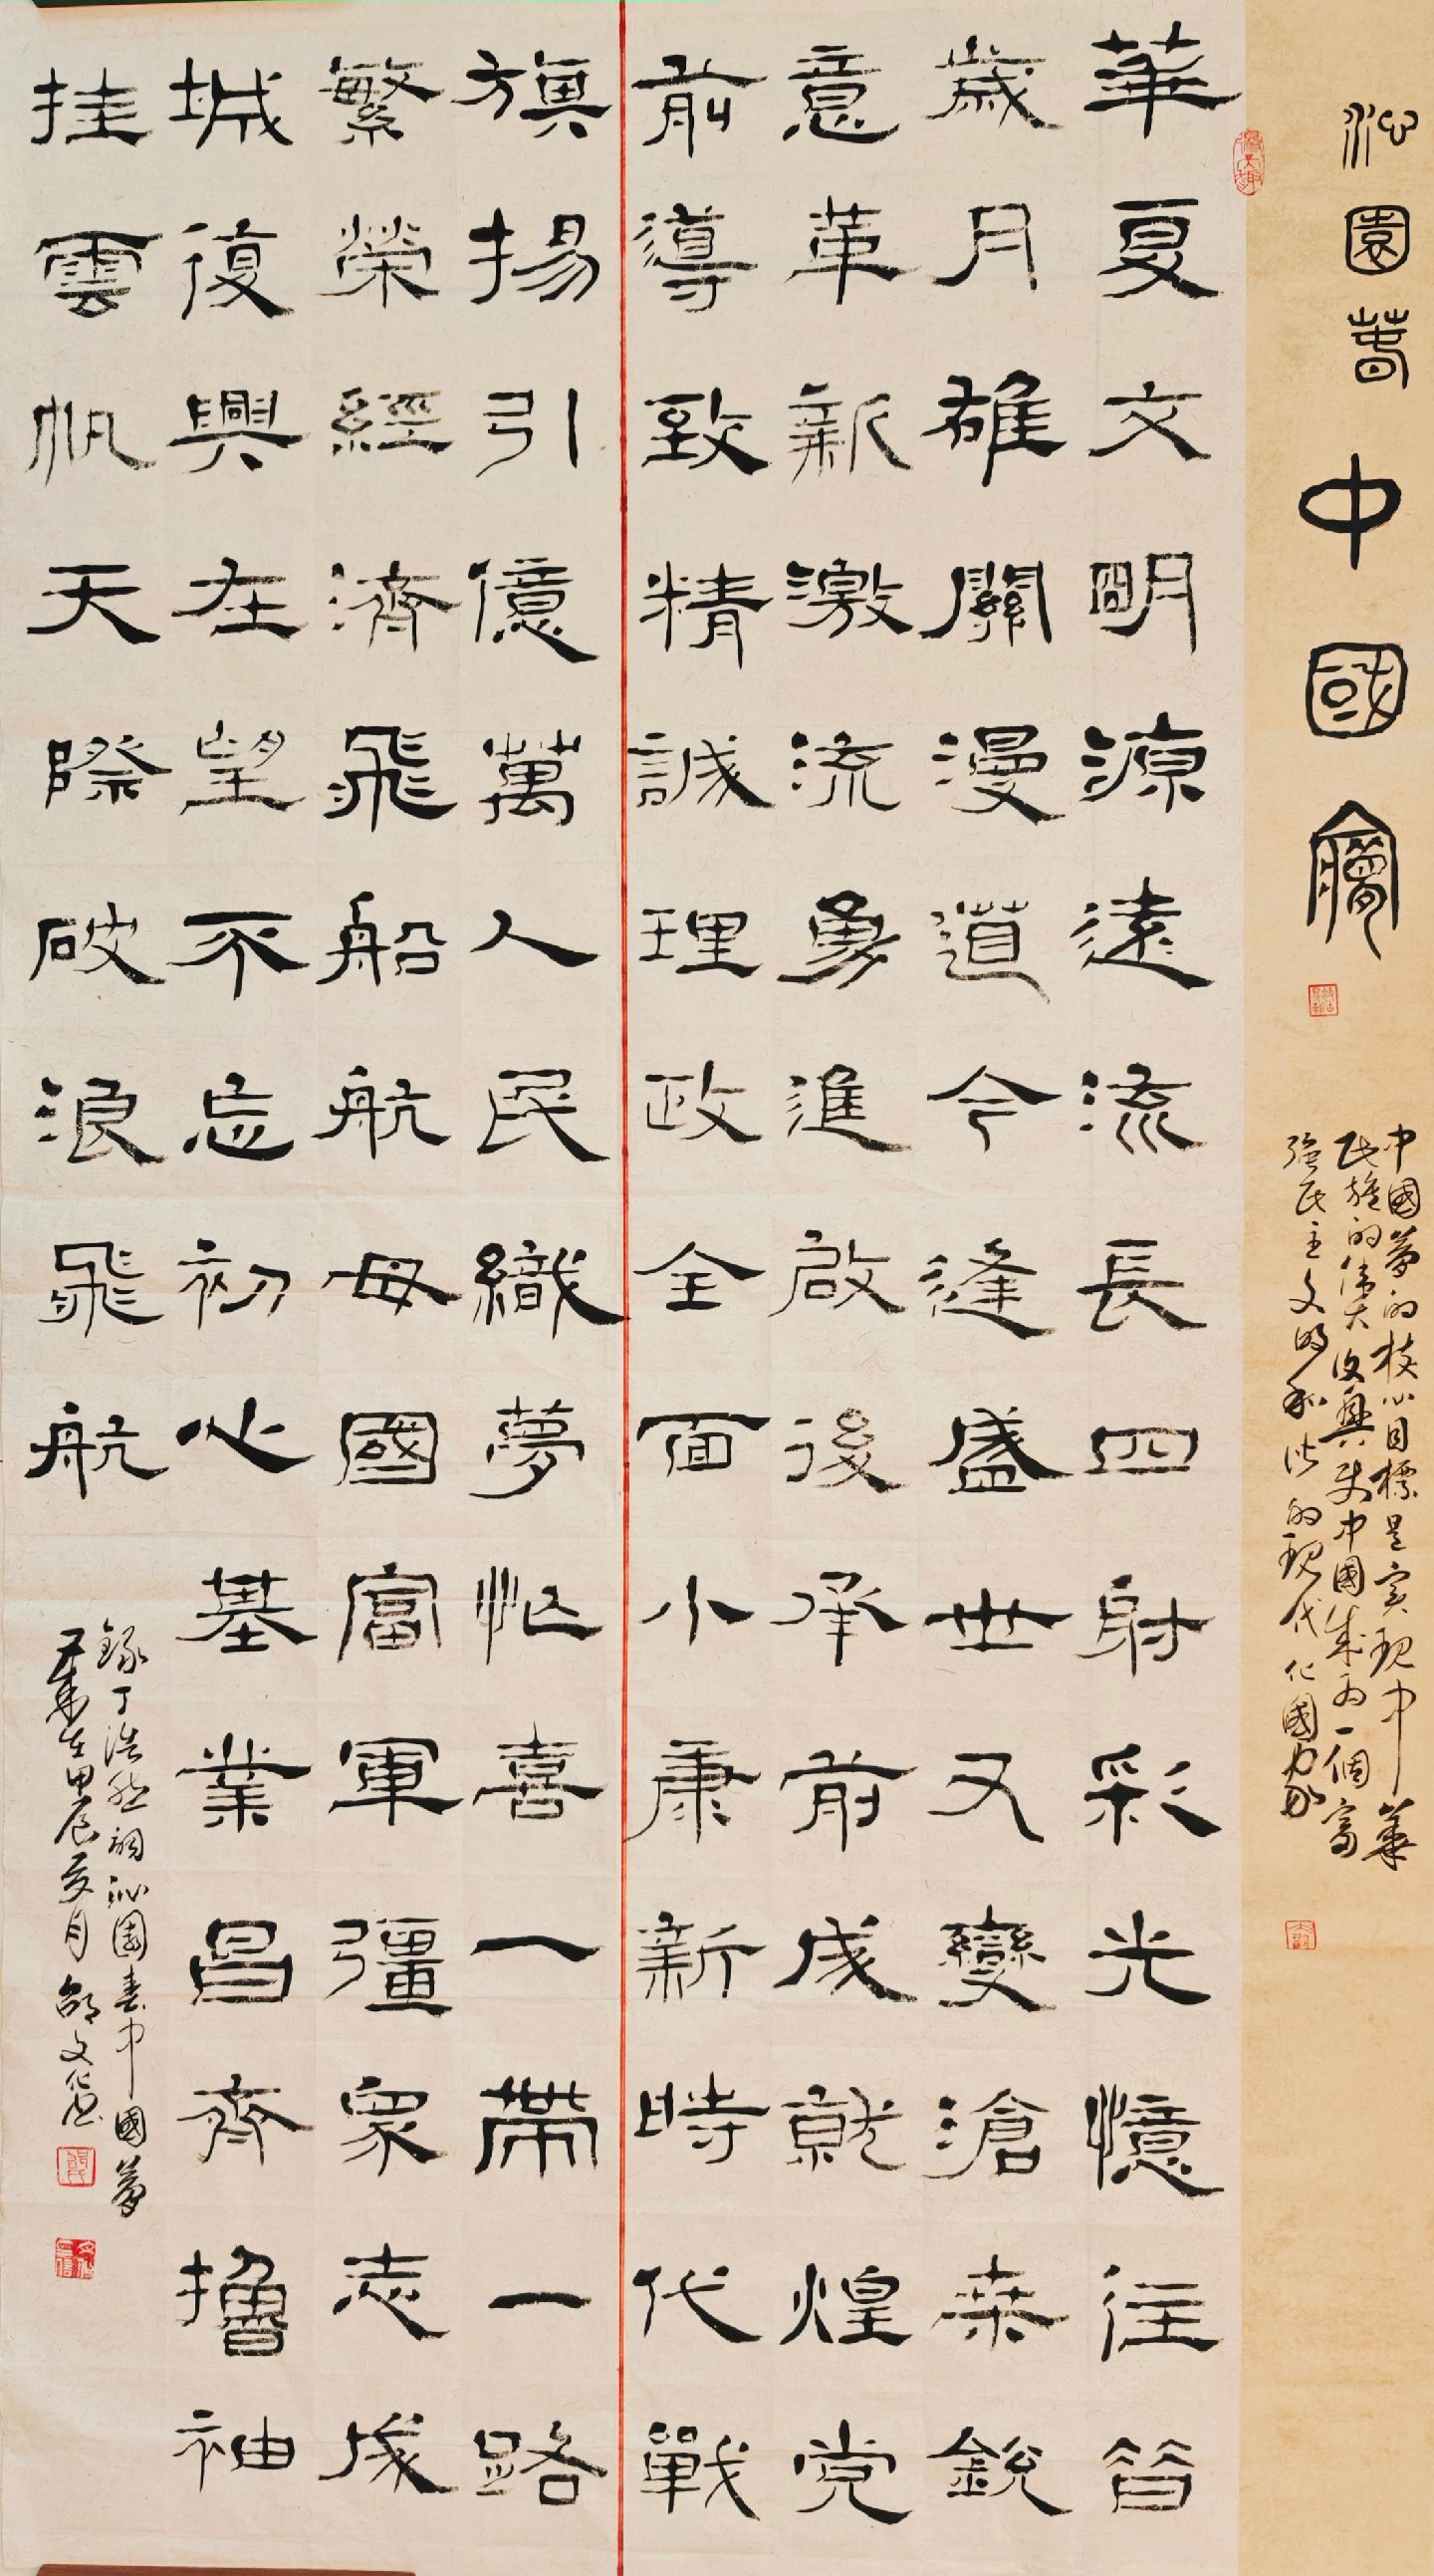 沁園萅中國夢
中國夢的核心目標是实現中華
民族的偉大復興使中國成为一個富
強民主文明和谐的現代化國家
華夏文明源遠流長四射彩光憶往昔
歲月雄關漫道今逢盛世又變滄桑銳
意革新激流勇進啟後承前成就煌党
前導致精誠理政全面小康新時代戰
旗揚引億萬人民織夢忙喜一帶一路
繁榮經濟飛船航母國富軍彊眾志成
城復興在望不忘初心基業昌齊擼袖
挂雲帆天際破浪飛航
錄丁浩然詞沁園春中國夢
歲在甲辰夏月